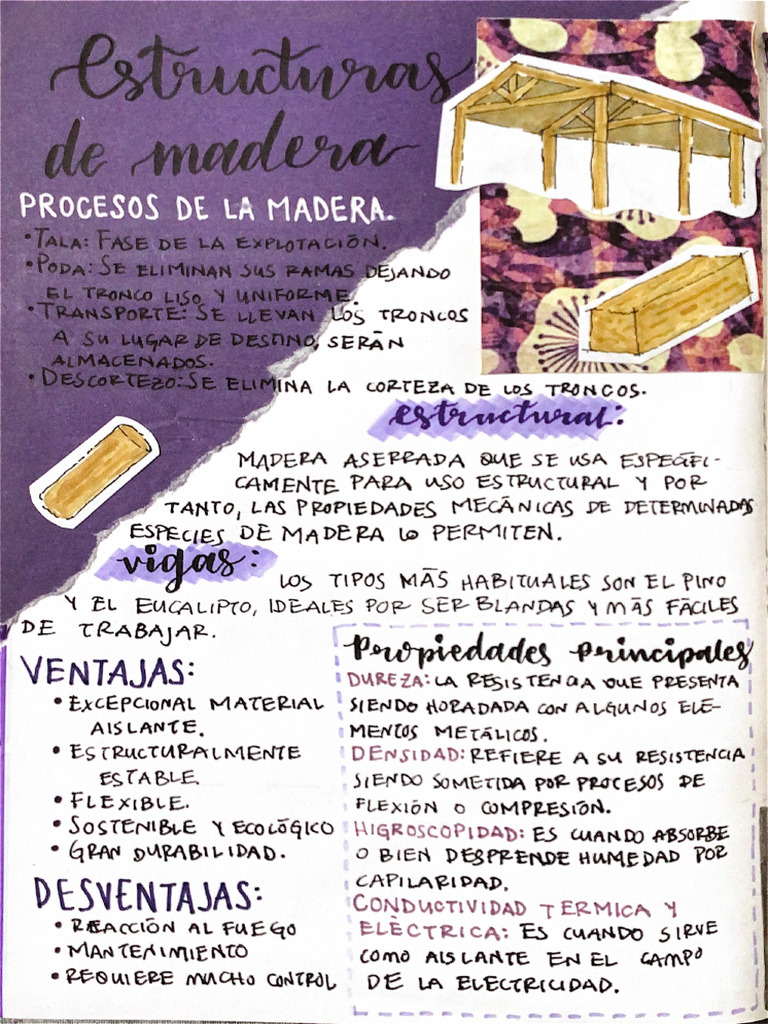 Estructuras
de madera
PROCESOS DE LA MADERA.
• TALA: FASE DE LA EXPLOTACIÓN.
• PODA: SE ELIMINAN SUS RAMAS DEJANDO
EL TRONCO LISO Y UNIFORME.
• TRANSPORTE: SE LLEVAN LOS TRONCOS
A SU LUGAR DE DESTINO, SERÁN
ALMACENADOS.
• DESCORTEZO: SE ELIMINA LA CORTEZA DE LOS TRONCOS.
estructural:
MADERA ASERRADA QUE SE USA ESPECÍFI-
CAMENTE PARA USO ESTRUCTURAL Y POR
TANTO, LAS PROPIEDADES MECÁNICAS DE DETERMINADAS
ESPECIES DE MADERA LO PERMITEN.
vigas:
LOS TIPOS MÁS HABITUALES SON EL PINO
Y EL EUCALIPTO, IDEALES POR SER BLANDAS Y MÁS FÁCILES
DE TRABAJAR.
VENTAJAS:
• EXCEPCIONAL MATERIAL
AISLANTE.
• ESTRUCTURALMENTE
ESTABLE.
• FLEXIBLE.
• SOSTENIBLE Y ECOLÓGICO
• GRAN DURABILIDAD.
DESVENTAJAS:
• REACCIÓN AL FUEGO
• MANTENIMIENTO
• REQUIERE MUCHO CONTROL
Propiedades principales
DUREZA: LA RESISTENCIA QUE PRESENTA
SIENDO HORADADA CON ALGUNOS ELE-
MENTOS METÁLICOS.
DENSIDAD: REFIERE A SU RESISTENCIA
SIENDO SOMETIDA POR PROCESOS DE
FLEXIÓN O COMPRESIÓN.
HIGROSCOPIDAD: ES CUANDO ABSORBE
O BIEN DESPRENDE HUMEDAD POR
CAPILARIDAD.
CONDUCTIVIDAD TERMICA Y
ELÈCTRICA: ES CUANDO SIRVE
COMO AISLANTE EN EL CAMPO
DE LA ELECTRICIDAD.